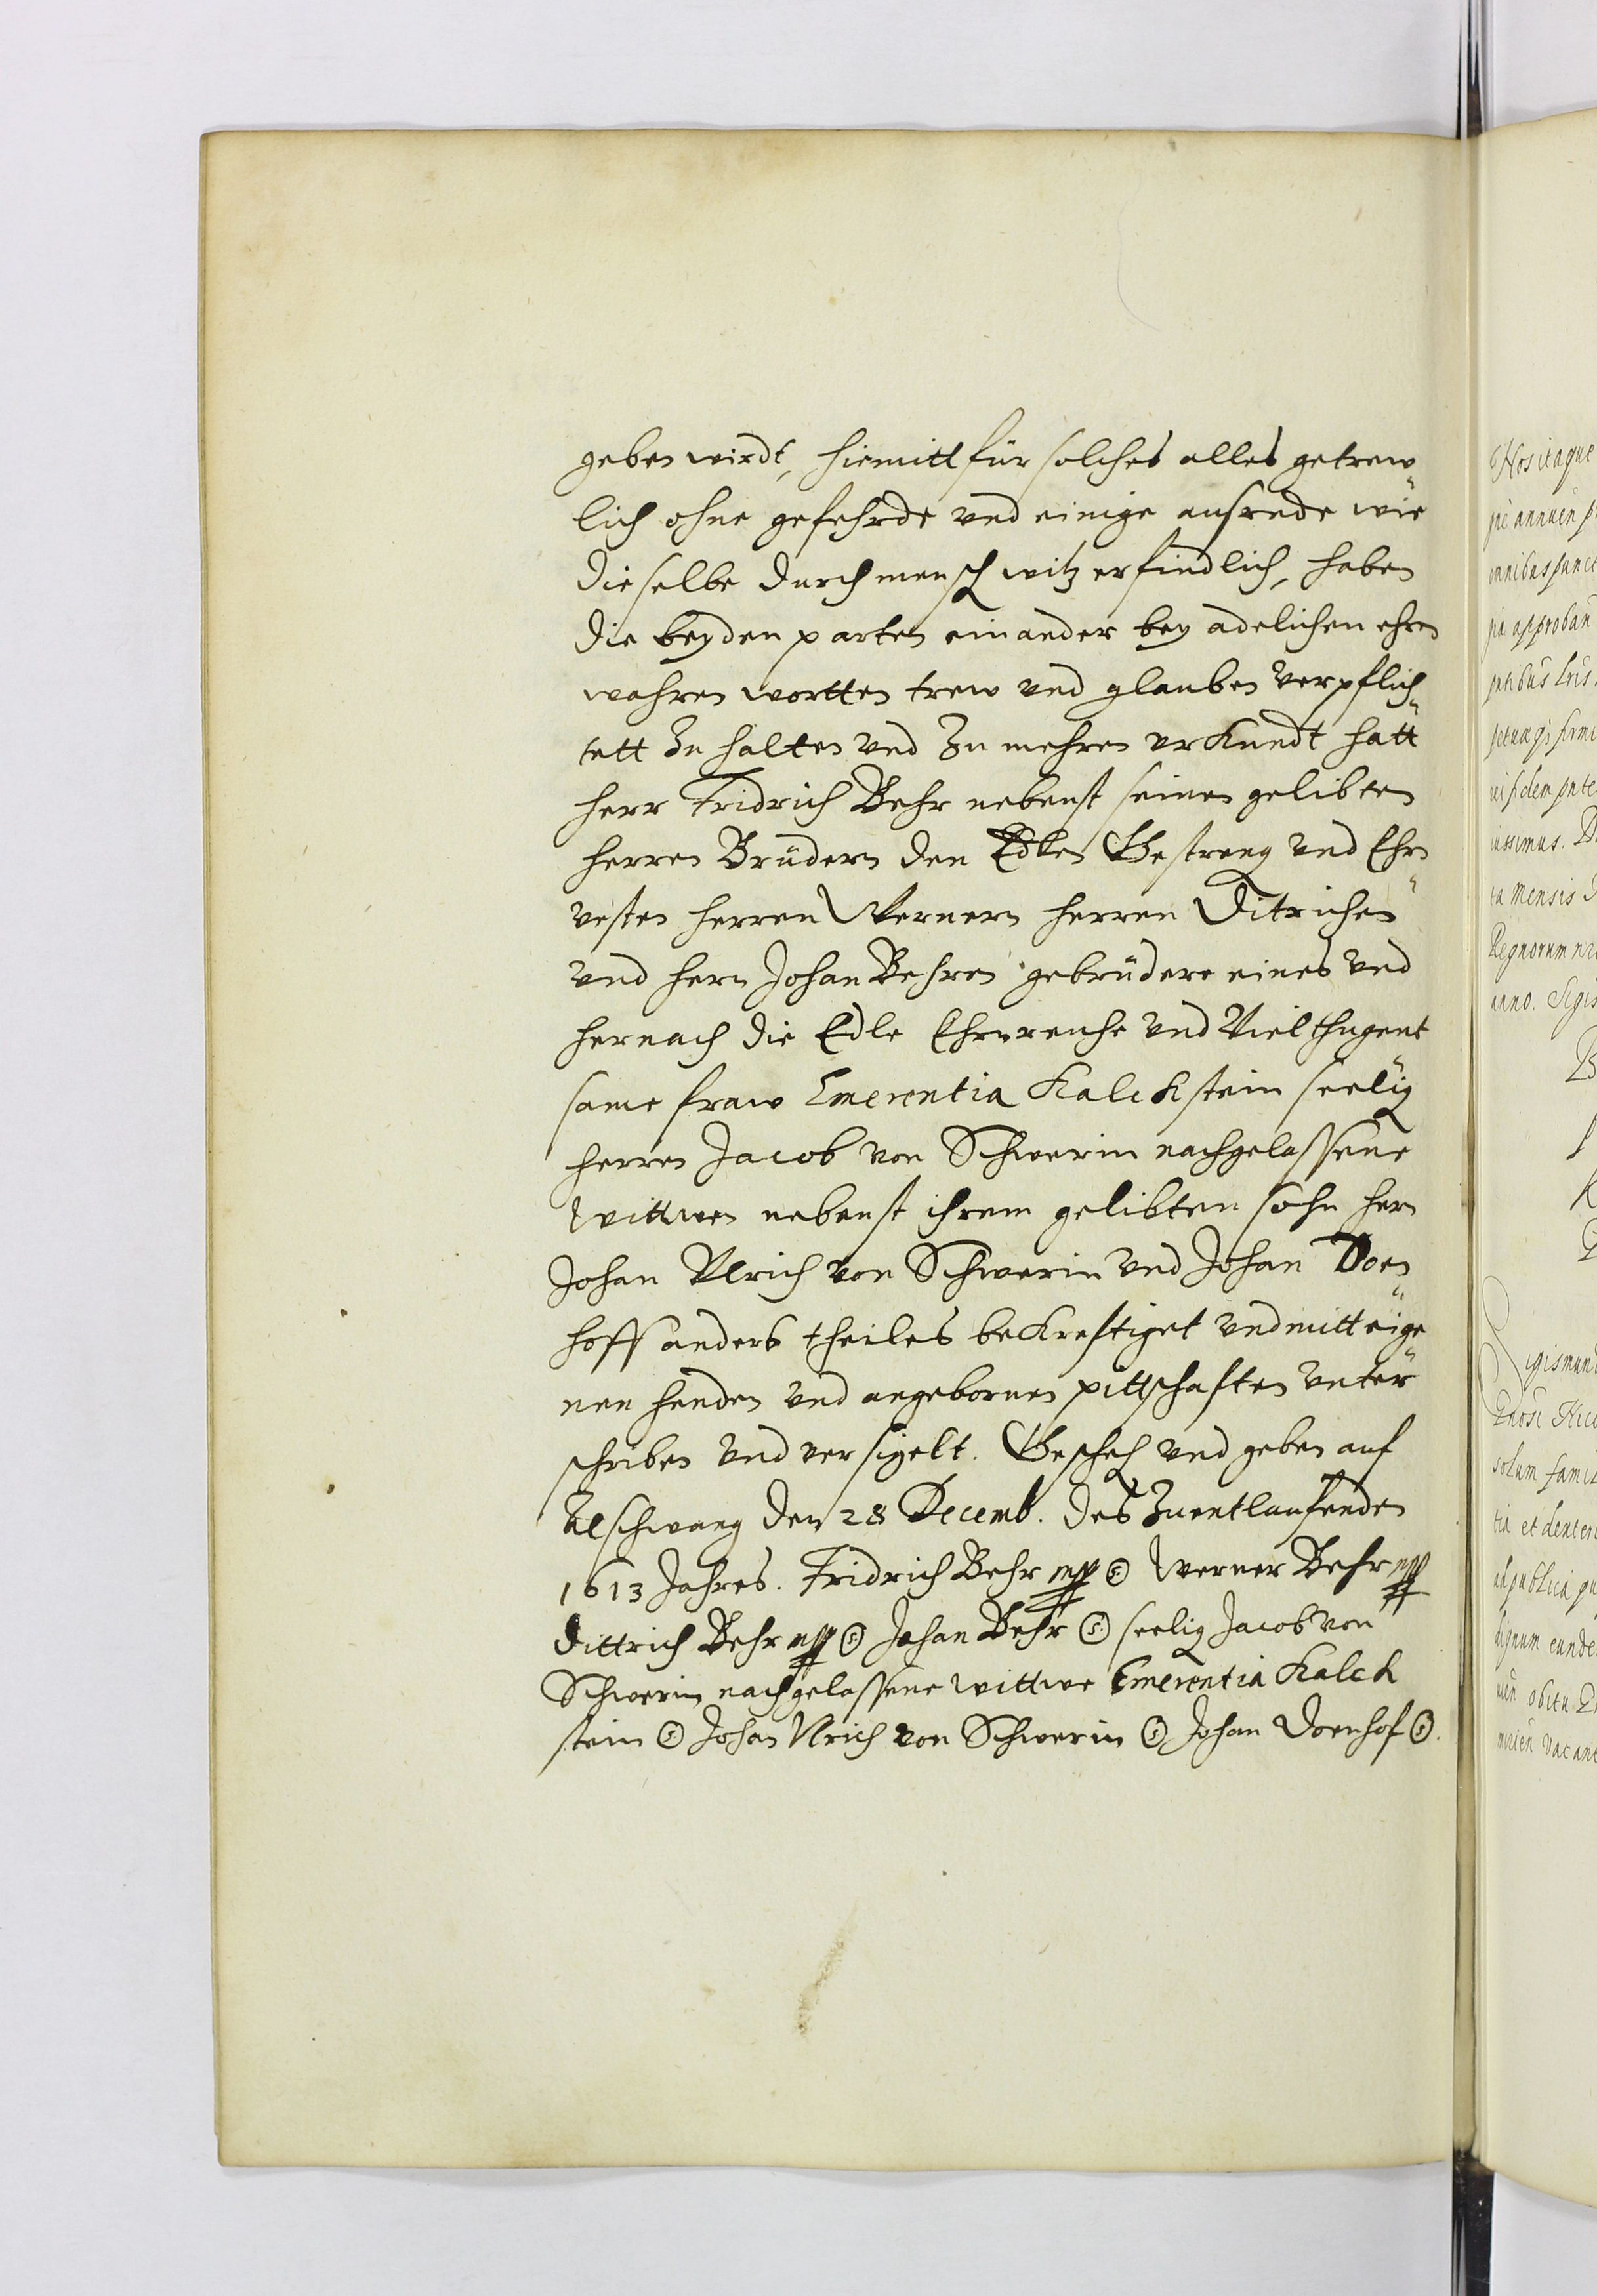 geben wirdt, hiemitt für solches alles getrew„
lich ohne gefehrde vnd einige ausrede wie
dieselbe durch mensch witz erfindlich, haben
die beyden parten einander bey adelichen ehren
wahren wortten trew vnd glauben verpflich„
tett Zu halten vnd Zu mehren vrkundt hatt
herr Fridrich Behr nebenst seinen gelibten
herren Brüdern den Edlen Gestreng vnd Ehrn„
vesten herren Wernern herren Ditrichen
vnd hern Johan Behren gebrüdere eines vnd
hernach die Edle Ehrnreiche vnd Vielthugent„
same fraw Emerentia Kalckstein seelig
herren Jacob von Schwerin nachgelassene
Wittwen nebenst ihrem gelibten sohn hern
Johan Vlrich von Schwerin vnd Johan Doen„
hoff anders theiles bekreftiget vnd mitt eige„
nen henden vnd angebornen pittschaften vnter
schriben vnd versigelt. Gescheh vnd geben auf
Alschwang den 28 Decemb. des Zuentlaufenden
1613 Jahres. Fridrich Behr mpp (S) Werner Behr mpp
Dittrich Behr mpp (S) Johan Behr (S) seelig Jacob von
Schwerin nachgelassene wittwe Emerentia Kalck
stein (S) Johan Vlrich von Schwerin (S) Johan Doenhof (S).
Nos itaque
omnibus punct
approban
Mensis
Regnorum
anno. Sigis
igismund
solum famil
et dexter
publica
vacant